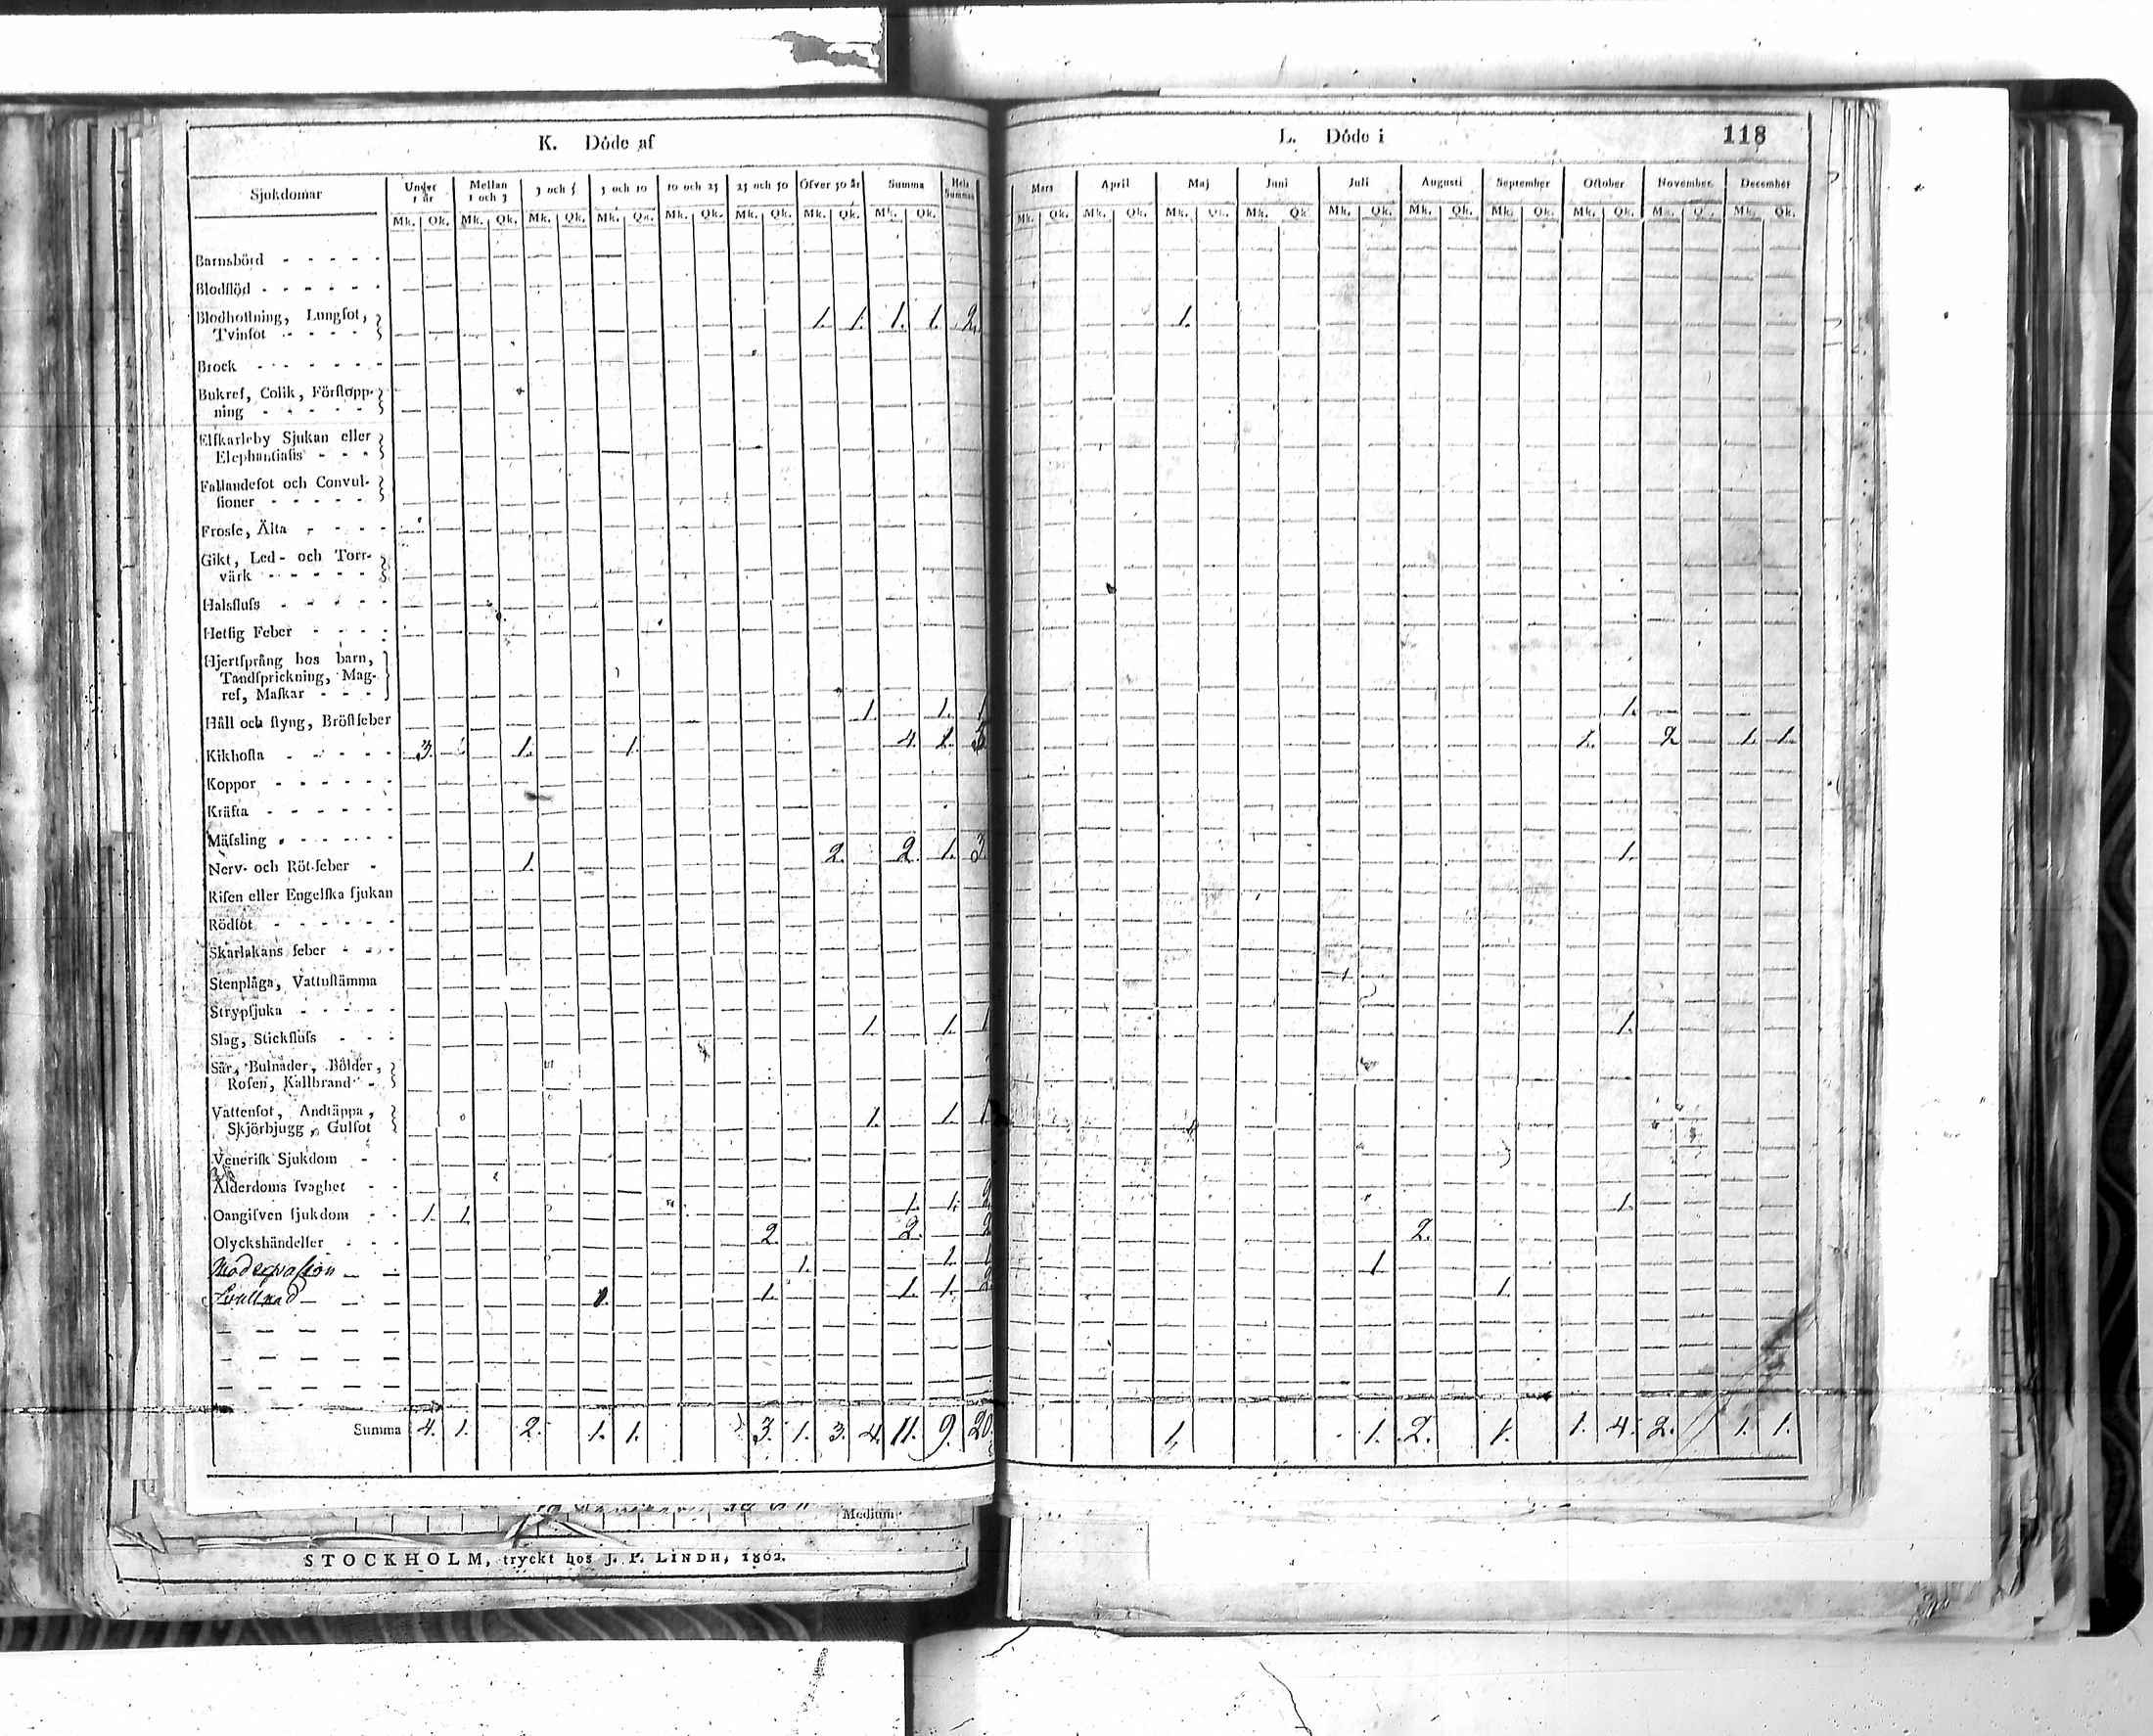 K. Döde af
L. Döde i
118
Sjukdomar
Under 1 år Mellan 1 och 3 3 och 5 5 och 10 10 och 25 25 och 50 Öfver 50 år Summa Hela Summan
Mars April Maj Juni Juli Augusti September October November. December
Mk. Qk. Mk. Qk. Mk. Qk. Mk. Qk. Mk. Qk. Mk. Qk. Mk. Qk. Mk. Qk.
Mk. Qk. Mk. Qk. Mk. Qk. Mk. Qk. Mk. Qk. Mk. Qk. Mk. Qk. Mk. Qk. Mk. Qk. Mk. Qk.
Barnsbörd
Blodflöd
Blodhoſtning, Lungſot,
Tvinſot 1. 1. 1. 1. 2. 1.
Brock
Bukref, Colik, Förſtopp-
ning
Elfkarleby Sjukan eller
Elephantiaſis
Fallandeſot och Convul-
ſioner
Frosſe, Älta
Gikt, Led- och Torr-
värk
Halsfluſs
Hetſig Feber
Hjertſprång hos barn,
Tandſprickning, Mag-
ref, Maſkar
Håll och ſtyng, Bröſtfeber 1. 1. 1 1.
Kikhoſta 3. 1. 1. 4. 1. 5 1. 2 1. 1.
Koppor
Kräfta
Mäſsling
Nerv- och Röt-feber 1. 2. 2. 1. 3. 1.
Riſen eller Engelſka ſjukan
Rödſot
Skarlakans feber
Stenplåga, Vattuſtämma
Strypſjuka
Slag, Stickfluſs 1. 1. 1 1.
Sår, Bulnader, Bölder,
Roſen, Kallbrand
Vattenſot, Andtäppa,
Skjörbjugg, Gulſot 1. 1. 1
Veneriſk Sjukdom
Ålderdoms ſvaghet
Oangifven ſjukdom 1. 1. 1. 1. 2 1.
Olyckshändelſer 2. 2. 2 2.
Moderpaſsion 1. 1. 1 1.
Svullnad 1. 1. 1. 1. 2 1.
Summa 4. 1. 2. 1. 1. 3. 1. 3. 4. 11. 9. 20.
1. 1. 2. 1. 1. 4. 2. 1. 1.
Medium
STOCKHOLM, tryckt hos J. P. LINDH, 1802.